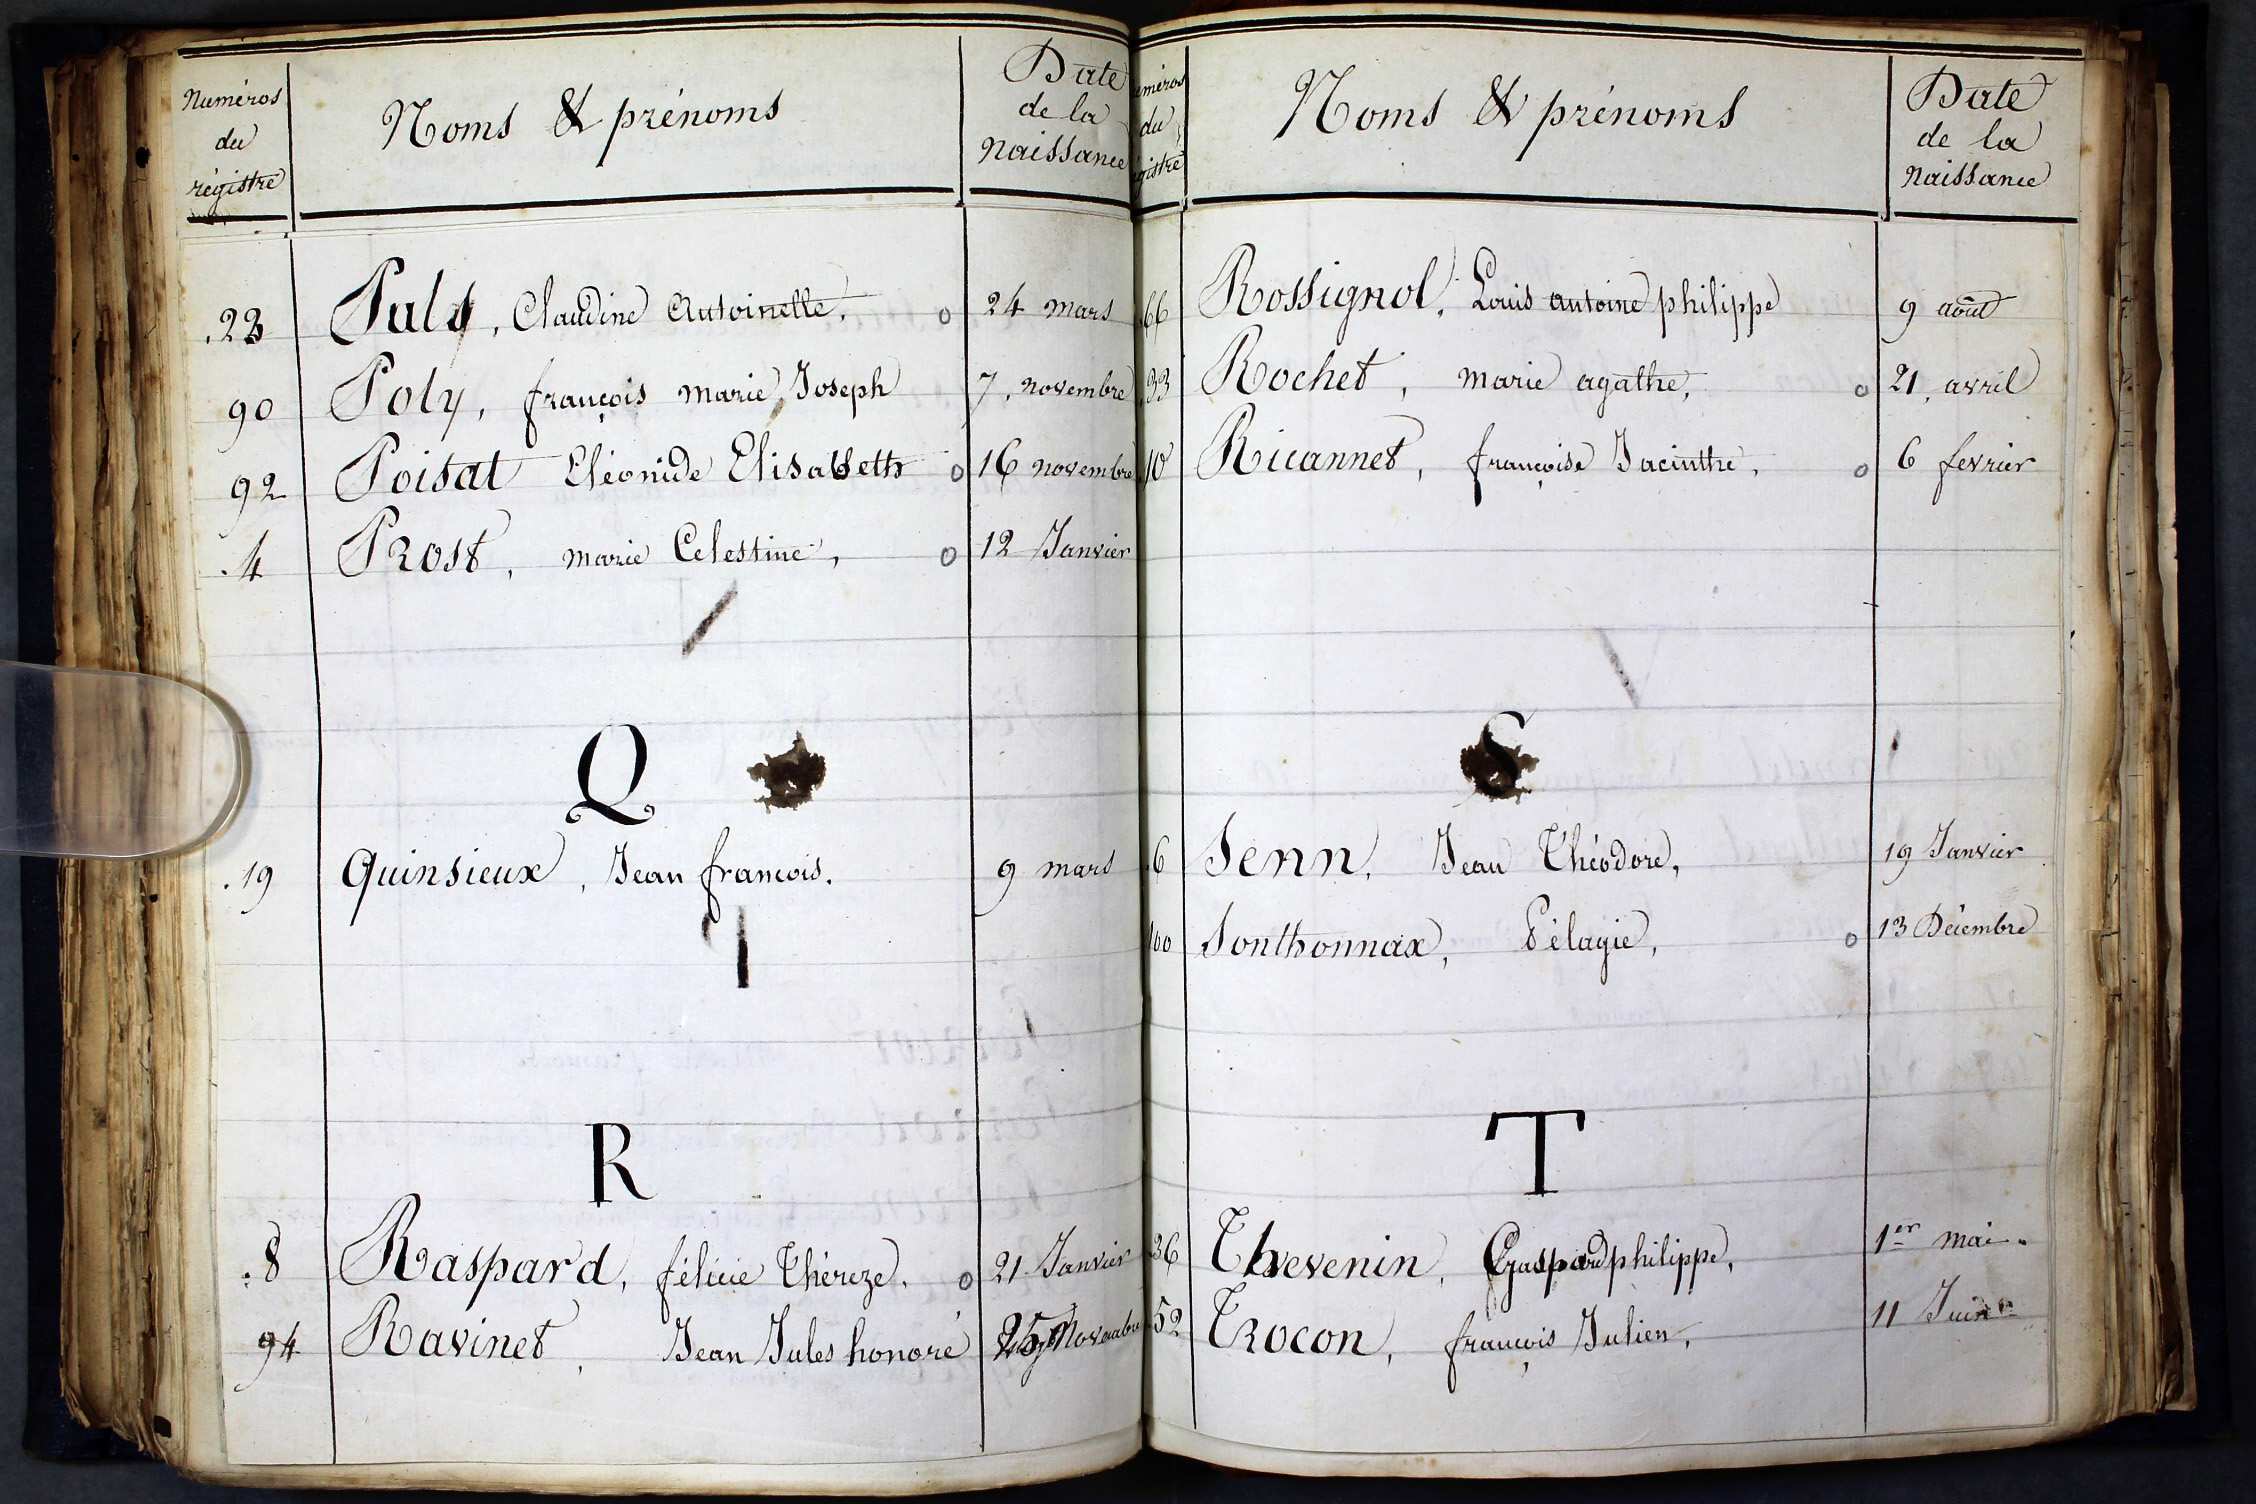 Numéros
du
régistre
Noms & prénoms
Date
de la
Naissance
23 , Claudine Antoinette. o 24 mars
90 Poly, françois marie Joseph 7, novembre
92 Poisat Eléonide Elisabeth o 16 novembre
4 Prost, marie Celestine, o 12 Janvier
Q
19 Quinsieux, Jean francois. 9 mars
R
8 Raspard, félicie Théreze. o 21 Janvier
94 Ravinet, Jean Jules honoré Novembre
uméros
du
gistre
Noms & prénoms
Date
de la
Naissance
66 Rossignol, Louis antoine philippe 9 août
33 Rochet, marie agathe, o 21, avril
10 Ricannet, françoise Jacinthe, o 6 fevrier
S
6 Senn, Jean Théodore, 19 Janvier
100 Sonthonnax, Pélagie, o 13 Décembre
T
36 Thevenin, Gaspard philippe, 1er mai.
52 Trocon, françois Julien, 11 Juin